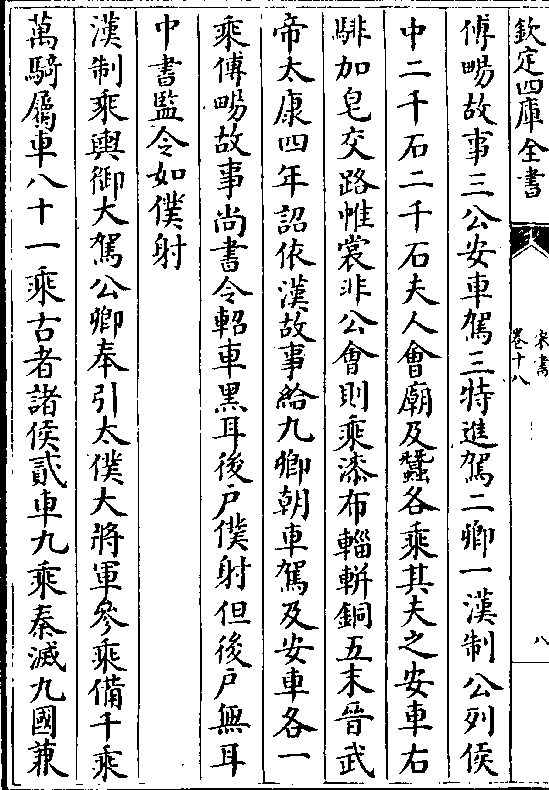 欽定四庫全書
宋書
卷十八
八
傅暢故事三公安車駕三特進駕二卿一漢制公列侯
中二千石二千石夫人會廟及蠶各乘其夫之安車右
騑加皂交路帷裳非公會則乘漆布輜軿銅五末晉武
帝太康四年詔依漢故事給九卿朝車駕及安車各一
乘傅暢故事尚書令軺車黑耳後戶僕射但後戶無耳
中書監令如僕射
漢制乘輿御大駕公卿奉引太僕大將軍參乘備千乘
萬騎屬車八十一乘古者諸侯貳車九乘秦滅九國兼